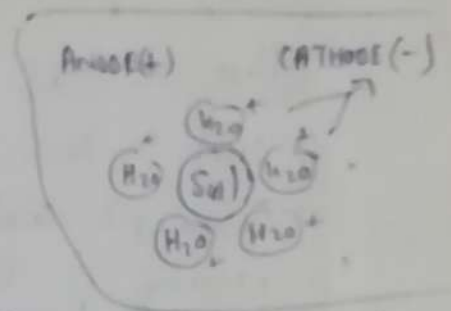 ANODE(+) CATHODE(-)
H2O +
H2O + Sol H2O +
H2O + H2O +